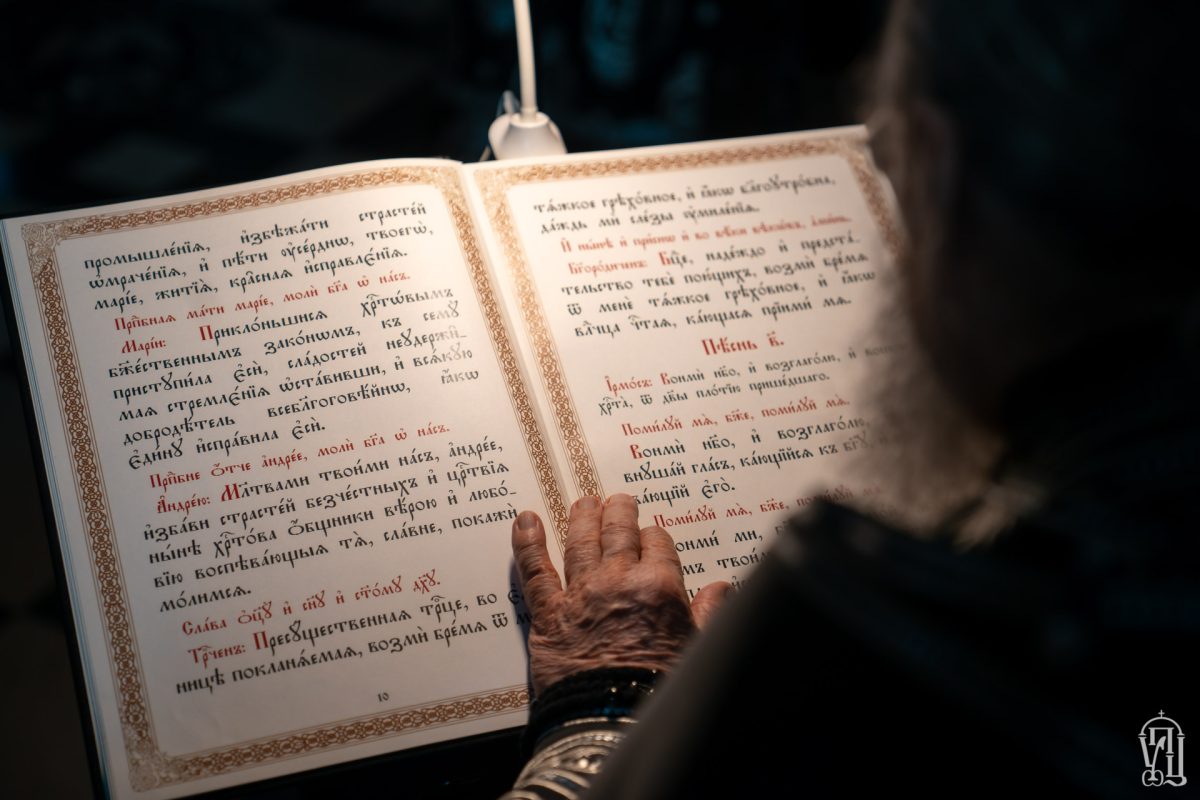 промышле́нїѧ, и҆збѣжа́ти страсте́й
ѡ҆мраче́нїѧ, и҆ пѣ́ти ᲂу҆се́рднѡ, твоегѡ̀,
марі́е, житїѧ̀, кра̑сная и҆справлє́нїѧ.
Прпⷣбнаѧ ма́ти марі́е, молѝ бг҃а ѡ҆ на́съ.
Марі́и: Прикло́ньшисѧ хрⷭ҇тѡ́вымъ
бж҃е́ственнымъ зако́нѡмъ, къ семꙋ̀
пристꙋпи́ла є҆сѝ, сла́достей неꙋдержи̑-
маѧ стремлє́нїѧ ѡ҆ста́вивши, и҆ всѧ́кꙋю
добродѣ́тель всебл҃гоговѣ́йнѡ, ꙗ҆́кѡ
є҆ди́нꙋ и҆спра́вила є҆сѝ.
Прпⷣбне ѻ҆́тче а҆ндре́е, молѝ бг҃а ѡ҆ на́съ.
А҆ндре́ю: Мл҃твами твои́ми на́съ, а҆ндре́е,
и҆зба́ви страсте́й безче́стныхъ и҆ црⷭ҇твїѧ
ны́нѣ хрⷭ҇то́ва ѻ҆́бщники вѣ́рою и҆ любо́-
вїю воспѣва́ющыѧ тѧ̀, сла́вне, покажѝ
мо́лимсѧ.
Сла́ва ѻ҆ц҃ꙋ̀ и҆ сн҃ꙋ и҆ ст҃о́мꙋ дх҃ꙋ.
Трⷪ҇ченъ: Пресꙋ́щественнаѧ трⷪ҇це, во
ницѣ покланѧ́емаѧ, возмѝ бре́мѧ ѿ
10
тѧ́жкое грѣхо́вное, и҆ ꙗ҆́кѡ бл҃гоꙋтро́бна,
да́ждь мѝ сле́зы ᲂу҆миле́нїѧ.
И҆ ны́нѣ и҆ при́снѡ и҆ во вѣ́ки вѣкѡ́въ, а҆ми́нь.
Бг҃оро́диченъ: Бц҃е, наде́ждо и҆ предста́-
тельство тебѐ пою́щихъ, возмѝ бре́мѧ
ѿ менє̀ тѧ́жкое грѣхо́вное, и҆ ꙗ҆́кѡ
влⷣчца чⷭ҇таѧ, ка́ющасѧ прїимѝ мѧ̀.
Пѣ́снь в҃.
І҆рмо́съ: Вонмѝ нб҃о, и҆ возглаго́лю, и҆
хрⷭ҇та̀, ѿ дв҃ы пло́тїю прише́дшаго.
Поми́лꙋй мѧ̀, бж҃е, поми́лꙋй мѧ̀.
Вонмѝ нб҃о, и҆ возглаго́лю,
внꙋша́й гла́съ, ка́ющїйсѧ къ бг҃ꙋ
ва́ющїй є҆го̀.
Поми́лꙋй мѧ̀, бж҃е, поми́лꙋй мѧ̀